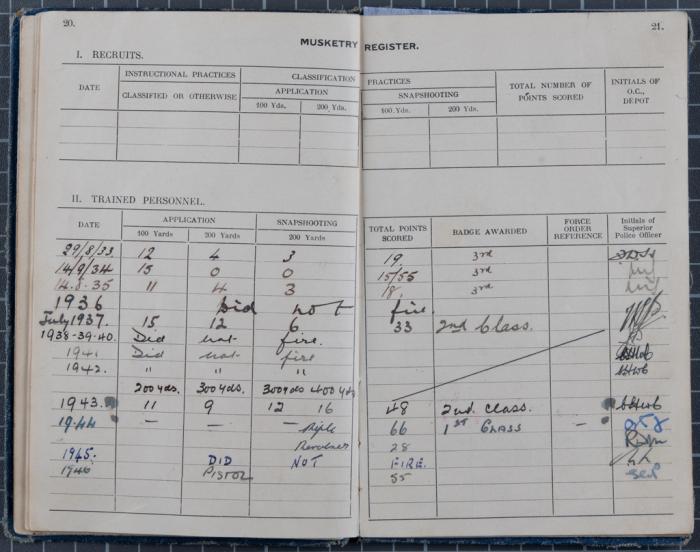 20.
21.
MUSKETRY REGISTER.
I. RECRUITS.
DATE
INSTRUCTIONAL PRACTICES
CLASSIFIED OR OTHERWISE
CLASSIFICATION PRACTICES
APPLICATION
SNAPSHOOTING
100 Yds. 200 Yds. 100 Yds. 200 Yds.
TOTAL NUMBER OF POINTS SCORED
INITIALS OF O.C., DEPOT
II. TRAINED PERSONNEL.
DATE APPLICATION SNAPSHOOTING TOTAL POINTS SCORED BADGE AWARDED FORCE ORDER REFERENCE Initials of Superior Police Officer
100 Yards 200 Yards 200 Yards
29/8/33 12 4 3 19 3rd
14/9/34 15 0 0 15/55 3rd
14.8.35 11 4 3 18. 3rd
1936 Did not fire.
July 1937. 15 12 6. 33 2nd Class.
1938-39-40. Did not fire.
1941 Did not fire
1942. " " "
200 yds. 300 yds. 300 yds 400 yds
1943. 11 9 12 16 48 2nd. Class.
1944 — — — Rifle 66 1ST CLASS —
Revolver 28
1945. DID NOT FIRE.
1946 PISTOL 55